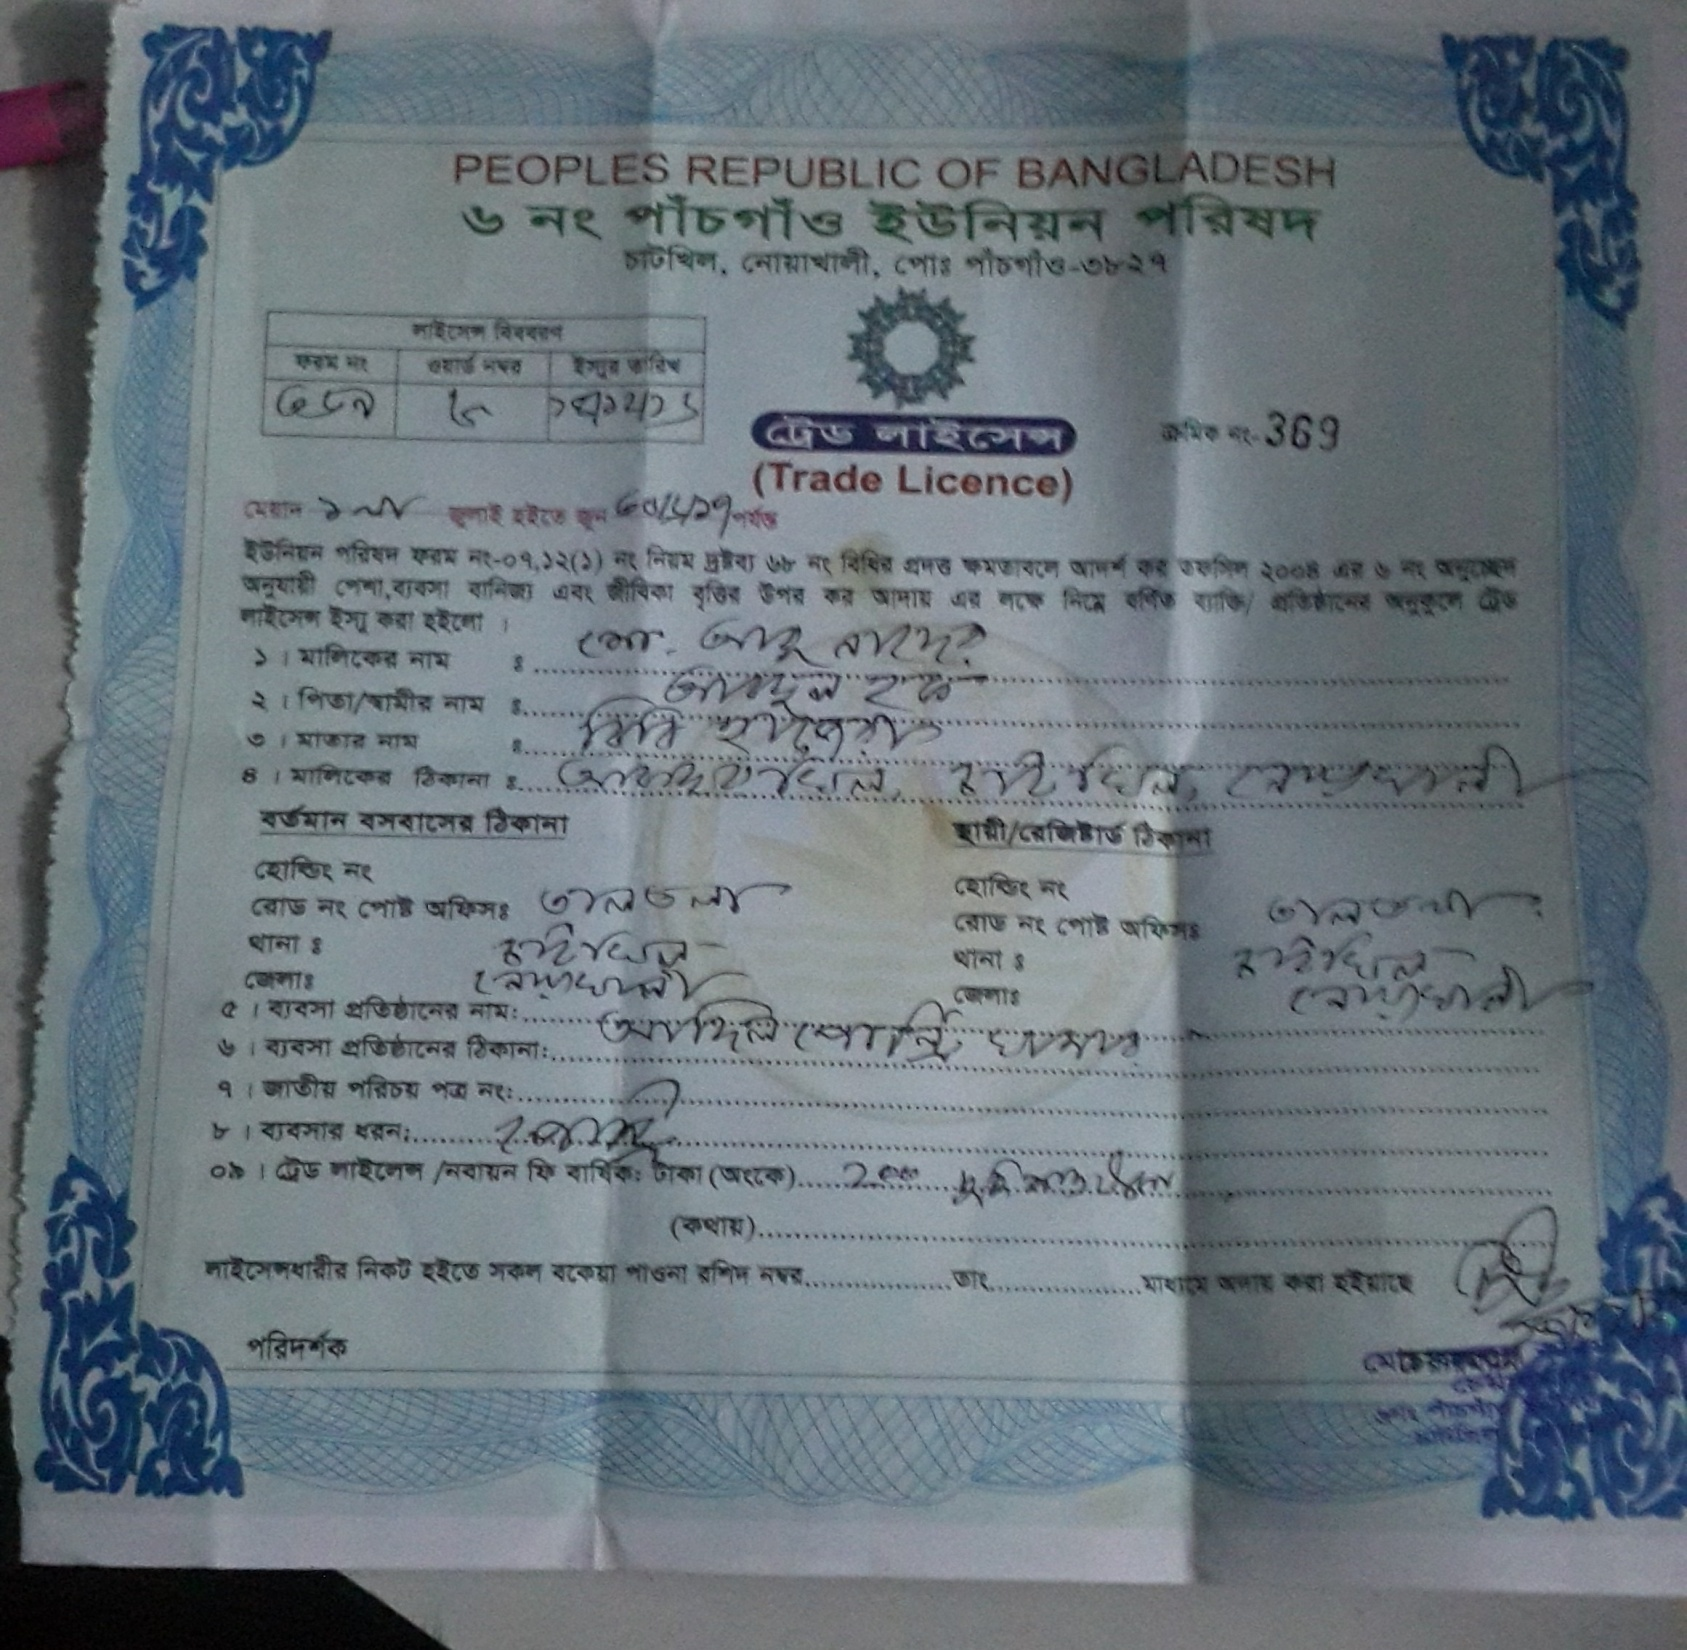 PEOPLES REPUBLIC OF BANGLADESH
৬ নং পাঁচগাঁও ইউনিয়ন পরিষদ
চাটখিল, নোয়াখালী, পোঃ পাঁচগাঁও-৩৮২৭
লাইসেন্স বিবরণ
ফরম নং ওয়ার্ড নম্বর ইস্যুর তারিখ
ট্রেড লাইসেন্স
ক্রমিক নং- 369
(Trade Licence)
মেয়াদ ১লা জুলাই হইতে জুন পর্যন্ত
ইউনিয়ন পরিষদ ফরম নং-০৭,১২(১) নং নিয়ম দ্রষ্টব্য ৬৮ নং বিধির প্রদত্ত ক্ষমতাবলে আদর্শ কর তফসিল ২০০৪ এর ৬ নং অনুচ্ছেদ
অনুযায়ী পেশা,ব্যবসা বানিজ্য এবং জীবিকা বৃত্তির উপর কর আদায় এর লক্ষে নিম্নে বর্ণিত ব্যক্তি/ প্রতিষ্ঠানের অনুকূলে ট্রেড
লাইসেন্স ইস্যু করা হইলো ।
১ । মালিকের নাম ঃ মো. আবু নাছের
২ । পিতা/স্বামীর নাম ঃ আবদুল হক
৩ । মাতার নাম ঃ বিবি
৪ । মালিকের ঠিকানা ঃ চাটখিল, নোয়াখালী
বর্তমান বসবাসের ঠিকানা স্থায়ী/রেজিষ্টার্ড ঠিকানা
হোল্ডিং নং হোল্ডিং নং
রোড নং পোষ্ট অফিসঃ তালতলা রোড নং পোষ্ট অফিসঃ তালতলা
থানা ঃ চাটখিল থানা ঃ চাটখিল
জেলাঃ নোয়াখালী জেলাঃ নোয়াখালী
৫ । ব্যবসা প্রতিষ্ঠানের নাম: আদিল পোল্ট্রি খামার
৬ । ব্যবসা প্রতিষ্ঠানের ঠিকানা:
৭ । জাতীয় পরিচয় পত্র নং:
৮ । ব্যবসার ধরন:
০৯ । ট্রেড লাইসেন্স /নবায়ন ফি বার্ষিক: টাকা (অংকে)
(কথায়)
লাইসেন্সধারীর নিকট হইতে সকল বকেয়া পাওনা রশিদ নম্বর তাং মাধ্যমে আদায় করা হইয়াছে
পরিদর্শক